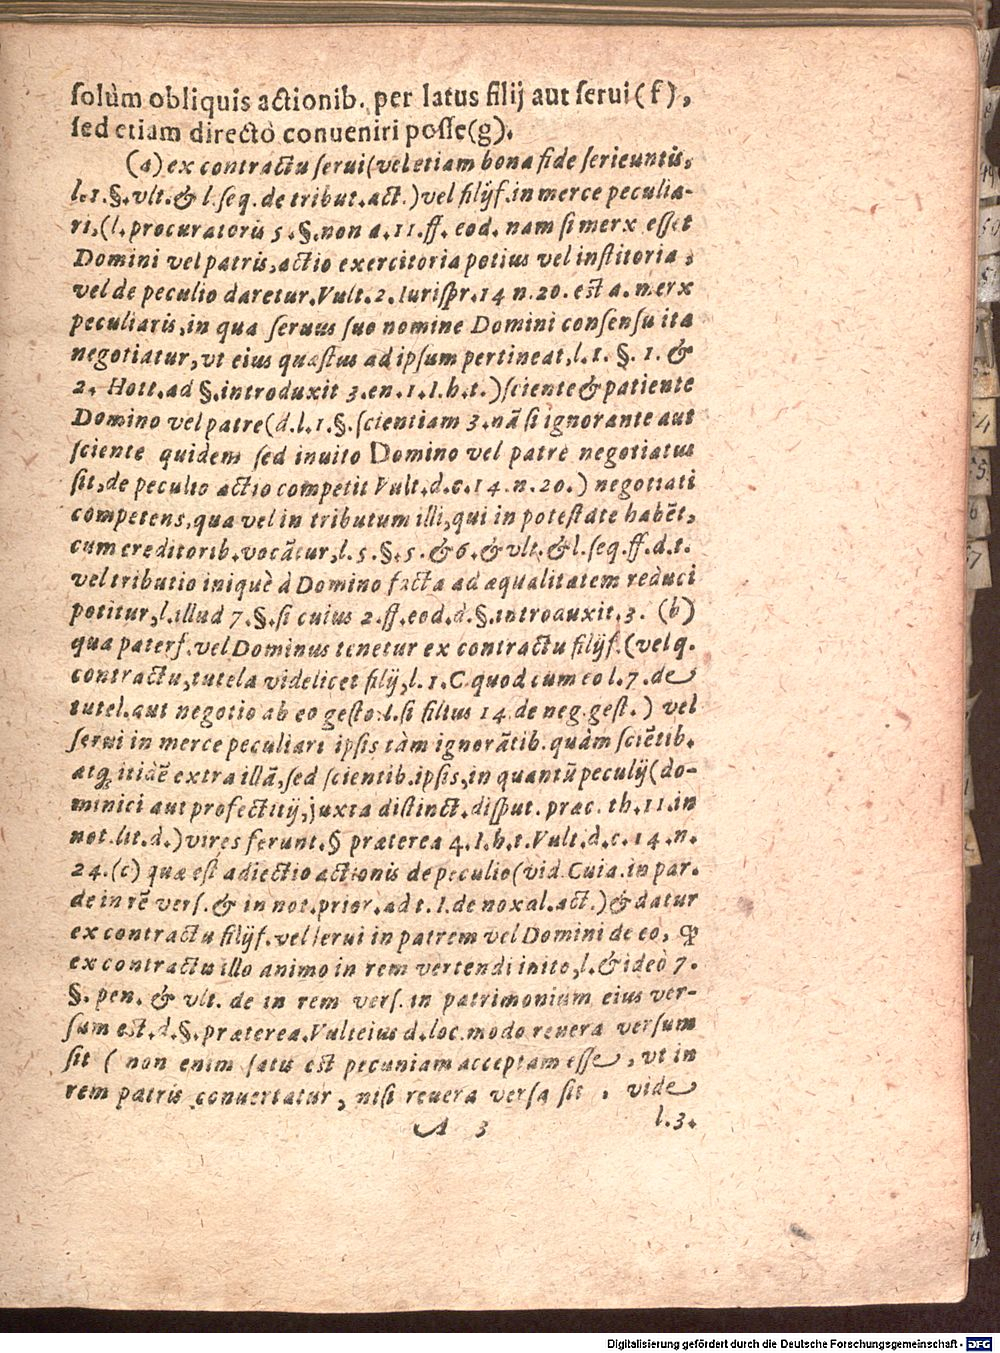 ſolùm obliquis actionib. per latus filij aut ſerui (f),
ſed etiam directò conueniri poſſe (g).
(a) ex contractu ſerui (vel etiam bona fide ſerieuntis,
l. 1. §. vlt. & l. ſeq. de tribut. act.) vel filijf. in merce peculia-
ri, (l. procuratoris 5. §. non a. 11. ff. eod. nam ſi merx eſſet
Domini vel patris, actio exercitoria potius vel inſtitoria,
vel de peculio daretur. Vult. 2. Iuriſpr. 14 n. 20. est a. merx
peculiaris, in qua ſeruus ſuo nomine Domini conſenſu ita
negotiatur, vt eius quæſtus ad ipſum pertineat, l. 1. §. 1. &
2. Hott. ad §. introduxit 3. en. 1. I. h. t.) ſciente & patiente
Domino vel patre (d. l. 1. §. ſcientiam 3. nã ſi ignorante aut
ſciente quidem ſed inuito Domino vel patre negotiatus
ſit, de peculio actio competit Vult. d. c. 14. n. 20.) negotiati
competens, qua vel in tributum illi, qui in poteſtate habẽt,
cum creditorib. vocãtur, l. 5. §. 5. & 6. & vlt. & l. ſeq. ff. d. t.
vel tributio iniquè à Domino facta ad æqualitatem reduci
potitur, l. illud 7. §. ſi cuius 2. ff. eod. d. §. introauxit. 3. (b)
qua paterf. vel Dominus tenetur ex contractu filijf. (vel q.
contractu, tutela videlicet filij, l. 1. C. quod cum eo l. 7. de
tutel. aut negotio ab eo geſto: l. ſi filius 14. de neg. geſt.) vel
ſerui in merce peculiari ipſis tàm ignorãtib. quàm ſciẽtib.
atq; itidẽ extra illã, ſed ſcientib. ipſis, in quantũ peculij (do-
minici aut profectitij, juxta diſtinct. diſput. præc. th. 11. in
not. lit. d.) vires ferunt. § præterea 4. I. h. t. Vult. d. c. 14. n.
24. (c) quæ eſt adiectio actionis de peculio (vid. Cuia. in par.
de in rẽ verſ. & in not. prior. ad t. I. de noxal. act.) & datur
ex contractu filijf. vel ſerui in patrem vel Domini de eo, ꝙ
ex contractu illo animo in rem vertendi inito, l. & ideò 7.
§. pen. & vlt. de in rem verſ. in patrimonium eius ver-
ſum est. d. §. præterea. Vulteius d. loc. modo reuera verſum
ſit ( non enim ſatis est pecuniam acceptam eſſe, vt in
rem patris conuertatur, niſi reuera verſa ſit, vide
A 3 l. 3.
Digitalisierung gefördert durch die Deutsche Forschungsgemeinschaft - DFG